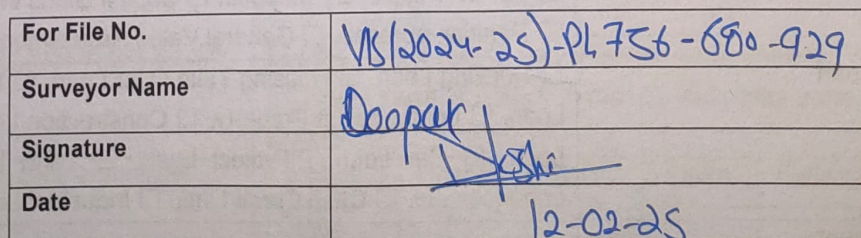 For File No. VIS(2024-25)-PL756-680-929
Surveyor Name Deepak
Signature Joshi
Date 12-02-25